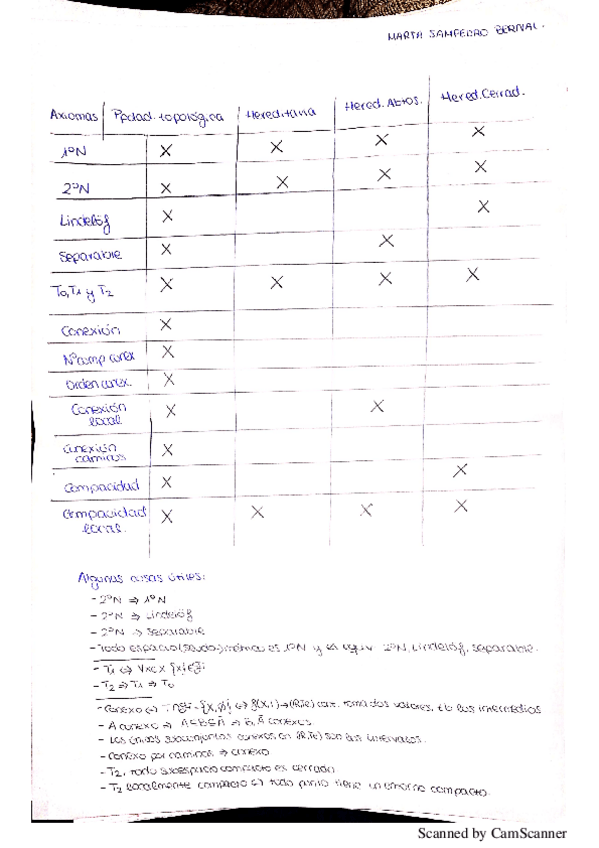 MARTA SAMPEDRO BERNAL.
Axiomas Ppdad. topológica Hereditaria Hered. Abtos. Hered. Cerrad.
1ºN X X X X
2ºN X X X X
Lindelöf X X
Separable X X
T0, T1 y T2 X X X X
Conexión X
Nºcomp conex X
Orden conex. X
Conexión local X X
Conexión caminos X
Compacidad X X
Compacidad local. X X X X
Algunas cosas útiles:
- 2ºN ⇒ 1ºN
- 2ºN ⇒ Lindelöf
- 2ºN ⇒ Separable
- Todo espacio (seudo)métrico es 1ºN y es equiv 2ºN, Lindelöf, separable.
- T1 ⇔ ∀x∈X {x}∈
- T2 ⇒ T1 ⇒ T0
- Conexo ⇔ {X,∅} ⇔ cont. toma dos valores, los intermedios
- A conexo ⇒ A⊂B⊂Ā ⇒ B, Ā conexos.
- Los únicos subconjuntos conexos en son los intervalos.
- Conexo por caminos ⇒ conexo
- T2, todo subespacio compacto es cerrado.
- T2 localmente compacto ⇔ todo punto tiene un entorno compacto.
Scanned by CamScanner